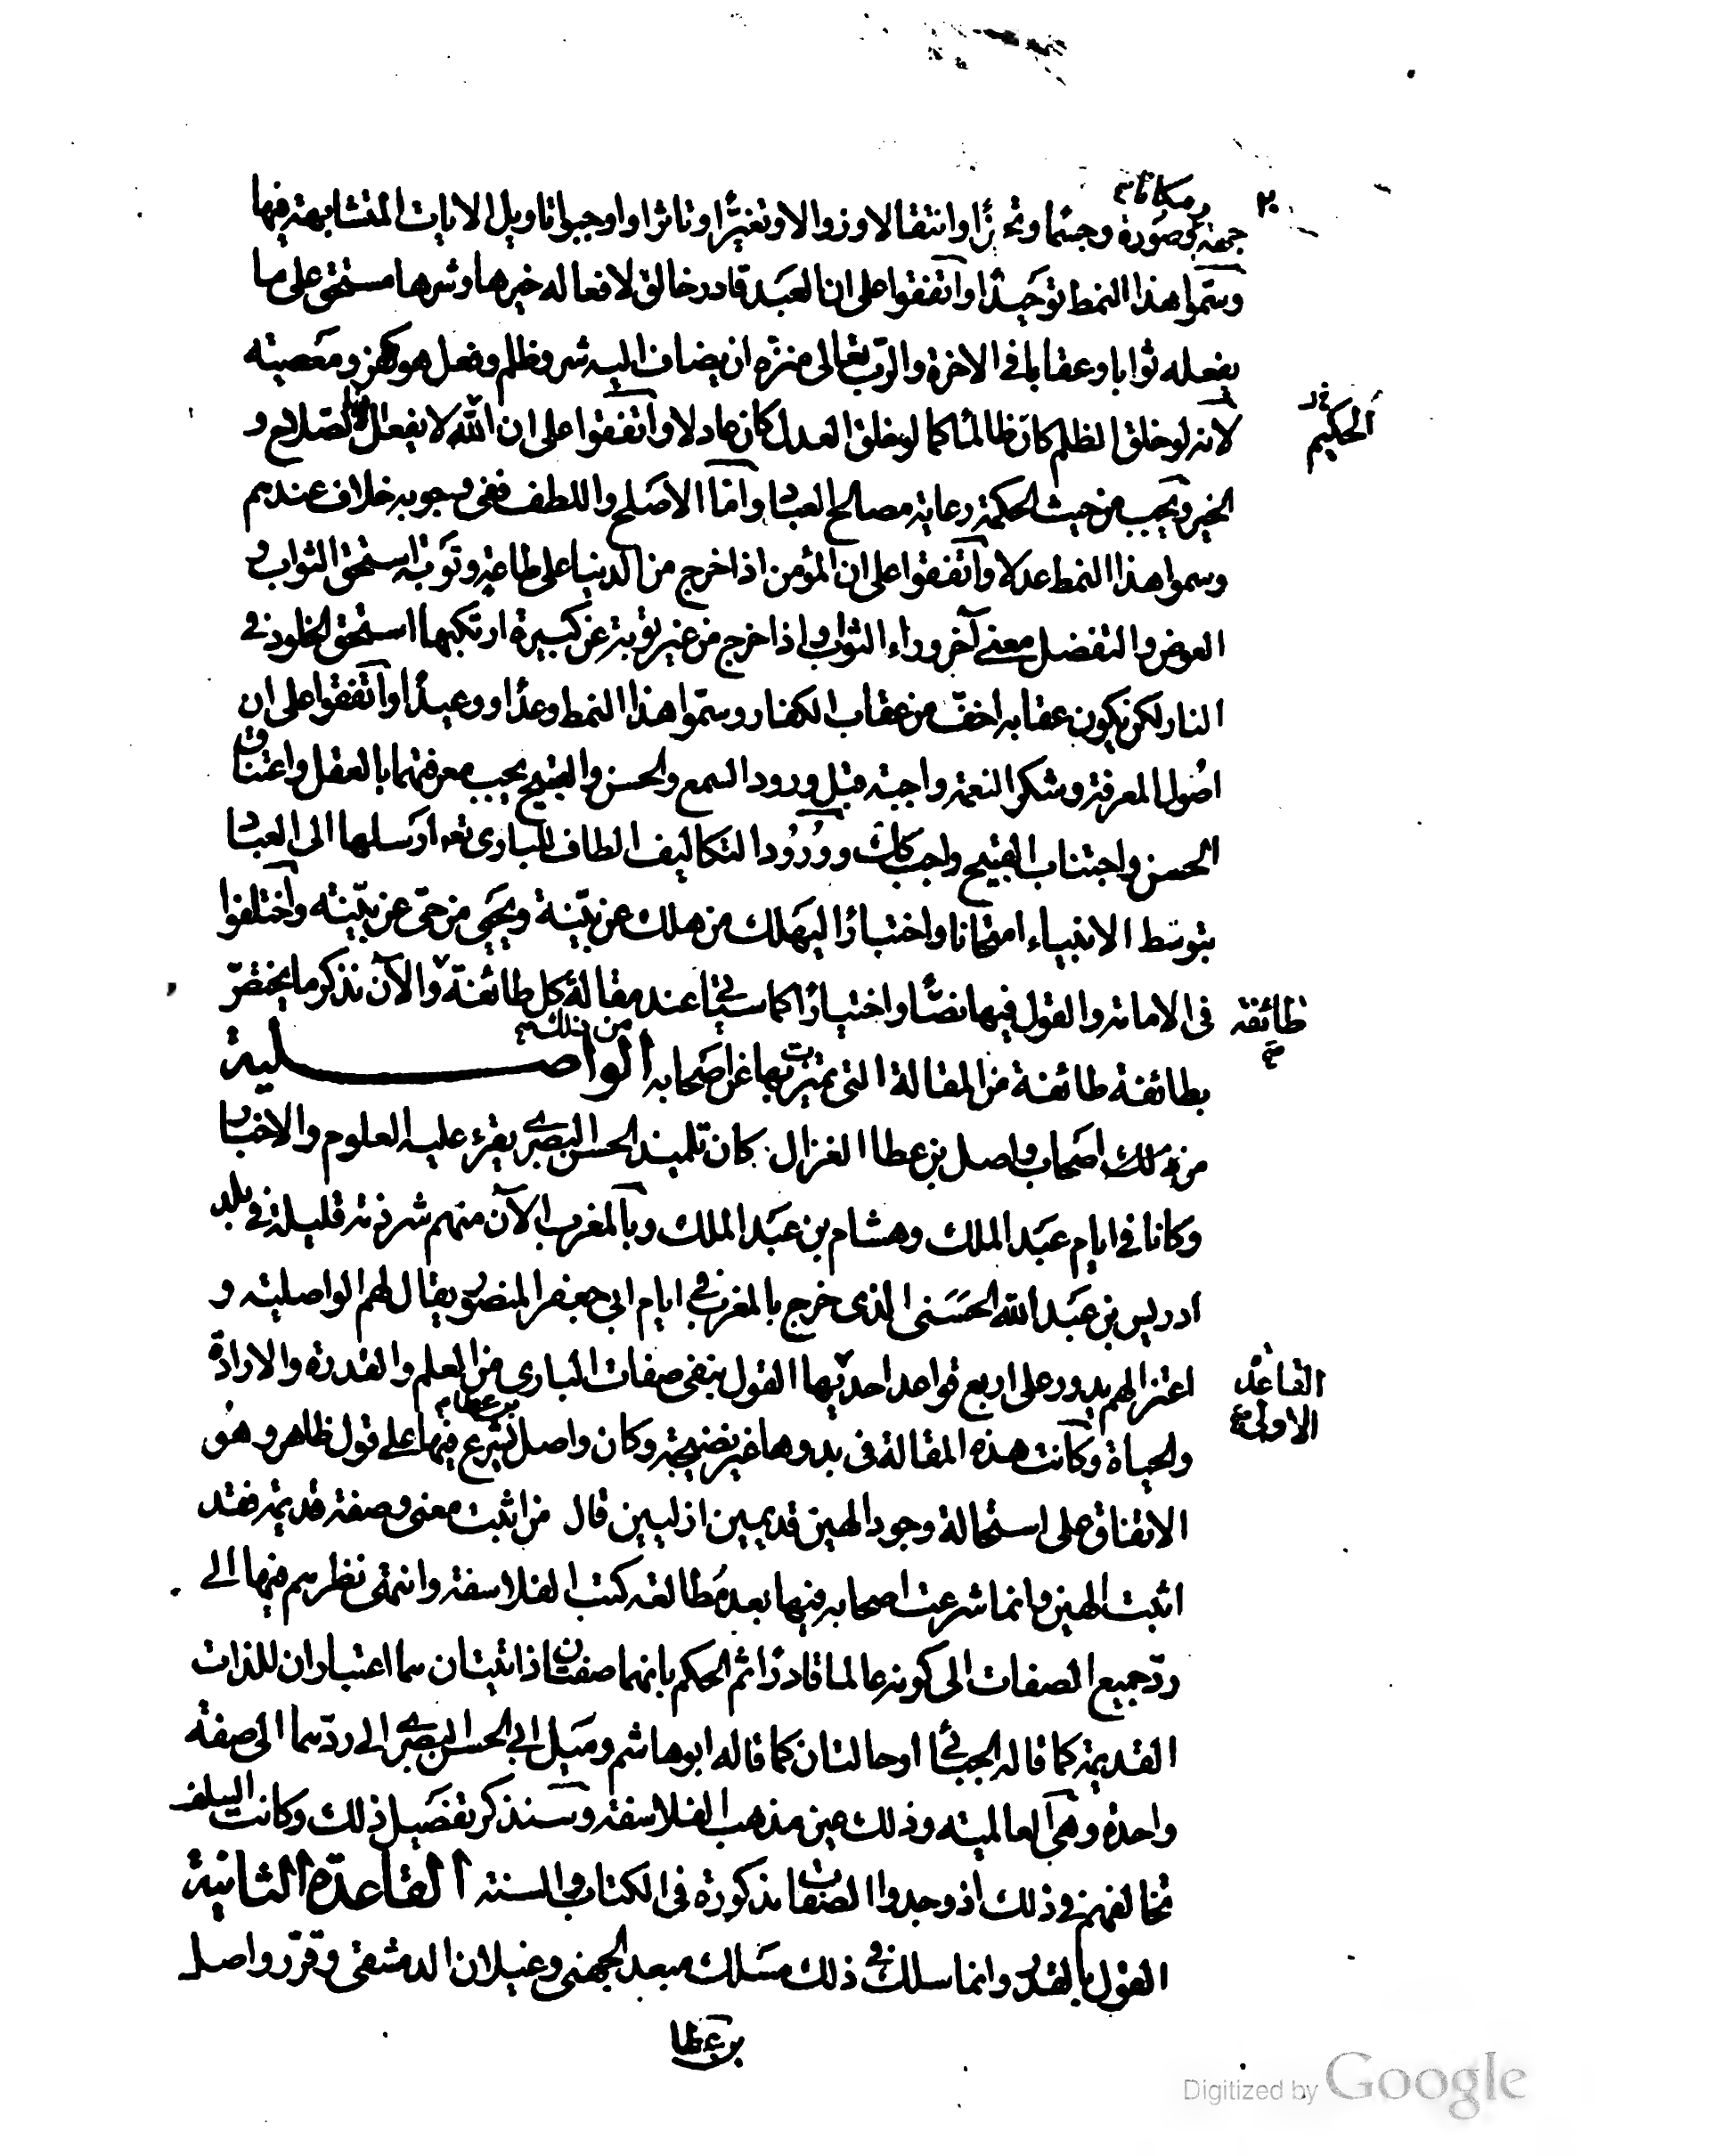 ٢٠
ومكانا
جهة وصورة وجسما وتحيزا وانتقالا وزوالا وتغيرا وتاثرا واوجبوا تاويل الايات المتشابهة فيها
وسموا هذا النمط توحيدا واتفقوا على ان العبد قادر خالق لافعاله خيرها وشرها مستحق على ما
يفعله ثوابا وعقابا في الاخرة والرب تعالى منزه ان يضاف اليه شر وظلم وفعل هو كفر ومعصيته
لانه لو خلق الظلم كان ظالما كما لو خلق العدل كان عادلا واتفقوا على ان الله لا يفعل الا الصلاح و
الحكيم
الخير ويجب من حيث الحكمة رعاية مصالح العباد واما الاصلح واللطف ففي وجوبه خلاف عندهم
وسموا هذا النمط عدلا واتفقوا على ان المؤمن اذا خرج من الدنيا على طاعة وتوبة استحق الثواب و
العوض والتفضل معنى آخر وراء الثواب واذا خرج من غير توبة عن كبيرة ارتكبها استحق الخلود في
النار لكن يكون عقابه اخف من عقاب الكفار وسموا هذا النمط وعدا ووعيدا واتفقوا على ان
اصول المعرفة وشكر النعمة واجبة قبل ورود السمع والحسن والقبيح يجب معرفتهما بالعقل واعتناق
الحسن واجتناب القبيح واجب كذلك وورود التكاليف الطاف للباري تعه ارسلها الى العباد
بتوسط الانبياء امتحانا واختبارا ليهلك من هلك عن بينة ويحيى من حي عن بينة واختلفوا
في الامامة والقول فيها نصا واختيارا كما سيأتي عند مقالة كل طائفة والآن نذكر ما يختص
طائفة
صح
بطائفة طائفة من المقالة التي تميزت بها عن اصحابه الواصلية
من ذلك
من ذلك اصحاب واصل بن عطا الغزال كان تلميذ الحسن البصري يقرء عليه العلوم والاخبار
وكانا في ايام عبد الملك وهشام بن عبد الملك وبالمغرب الآن منهم شرذمة قليلة في بلد
ادريس بن عبد الله الحسني الذي خرج بالمغرب في ايام ابي جعفر المنصور يقال لهم الواصلية و
اعتزالهم يدور على اربع قواعد احديها القول بنفي صفات الباري من العلم والقدرة والارادة
القاعدة
الاولى
والحياة وكانت هذه المقالة في بدوها غير نضيجة وكان واصل بن عطا يشرع فيها على قول ظاهر وهو
الاتفاق على استحالة وجود الهين قديمين ازليين قال من اثبت معنى وصفة قديمة فقد
اثبت الهين وانما شرعت اصحابه فيها بعد مطالعة كتب الفلاسفة وانتهى نظرهم فيها الى
رد جميع الصفات الى كونه عالما قادرا ثم الحكم بانهما صفتان ذاتيتان هما اعتباران للذات
القديمة كما قاله الجبائي او حالتان كما قاله ابو هاشم وميل ابي الحسين البصري الى ردهما الى صفة
واحدة وهي العالمية وذلك عين مذهب الفلاسفة وسنذكر تفصيل ذلك وكانت السلف
تخالفهم في ذلك اذ وجدوا الصفات مذكورة في الكتاب والسنة القاعدة الثانية
القول بالقدر وانما سلك في ذلك مسلك معبد الجهني وغيلان الدمشقي وقرر واصل
بن عطا
Digitized by Google